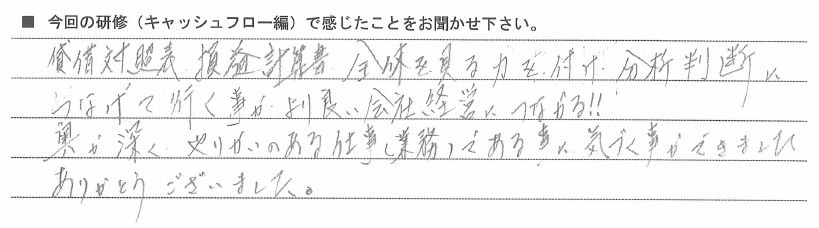 ■ 今回の研修（キャッシュフロー編）で感じたことをお聞かせ下さい。
貸借対照表 損益計算書 全体を見る力を付け 分析判断に
つなげて行く事が より良い会社経営につながる!!
奥が深く やりがいのある仕事（業務）である事に 気づく事ができました
ありがとうございました。